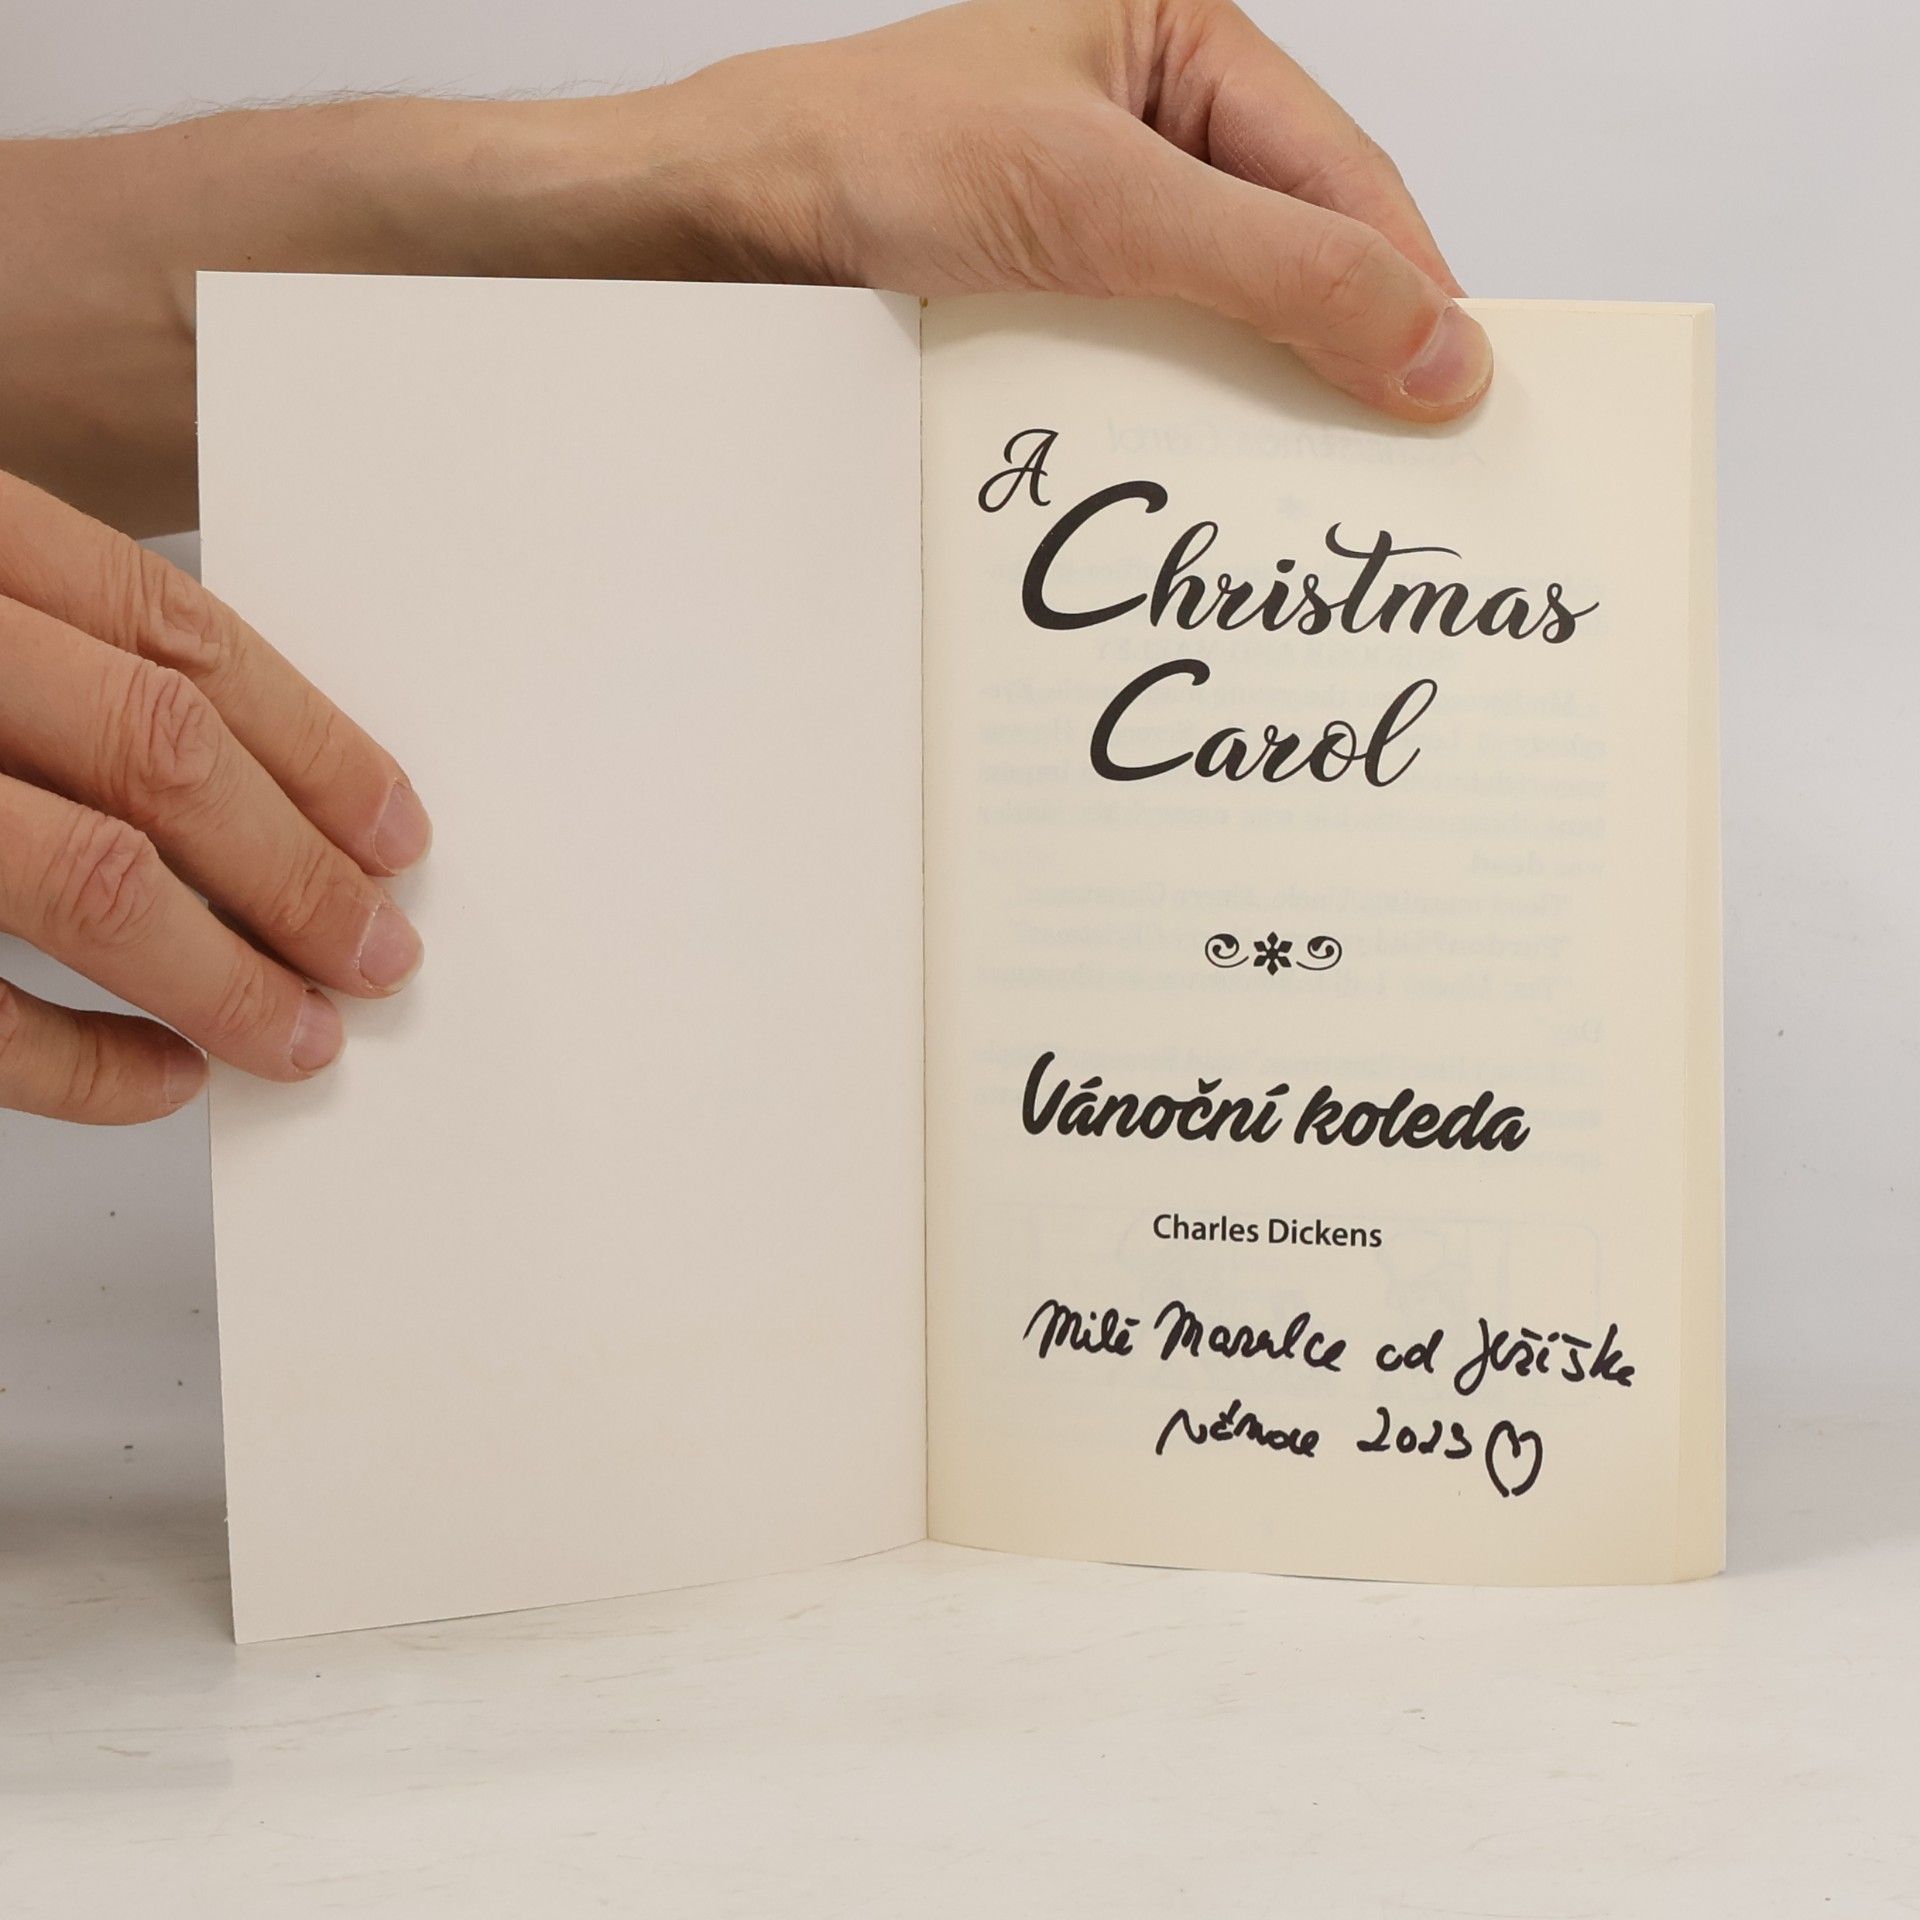 A
Christmas
Carol
Vánoční koleda
Charles Dickens
Milé od Ježíška
2023